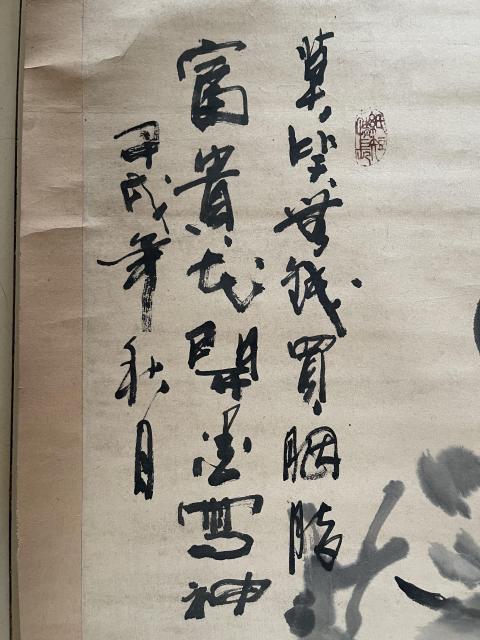 莫笑無錢買胭脂
富貴花開墨寫神
甲戌年秋月